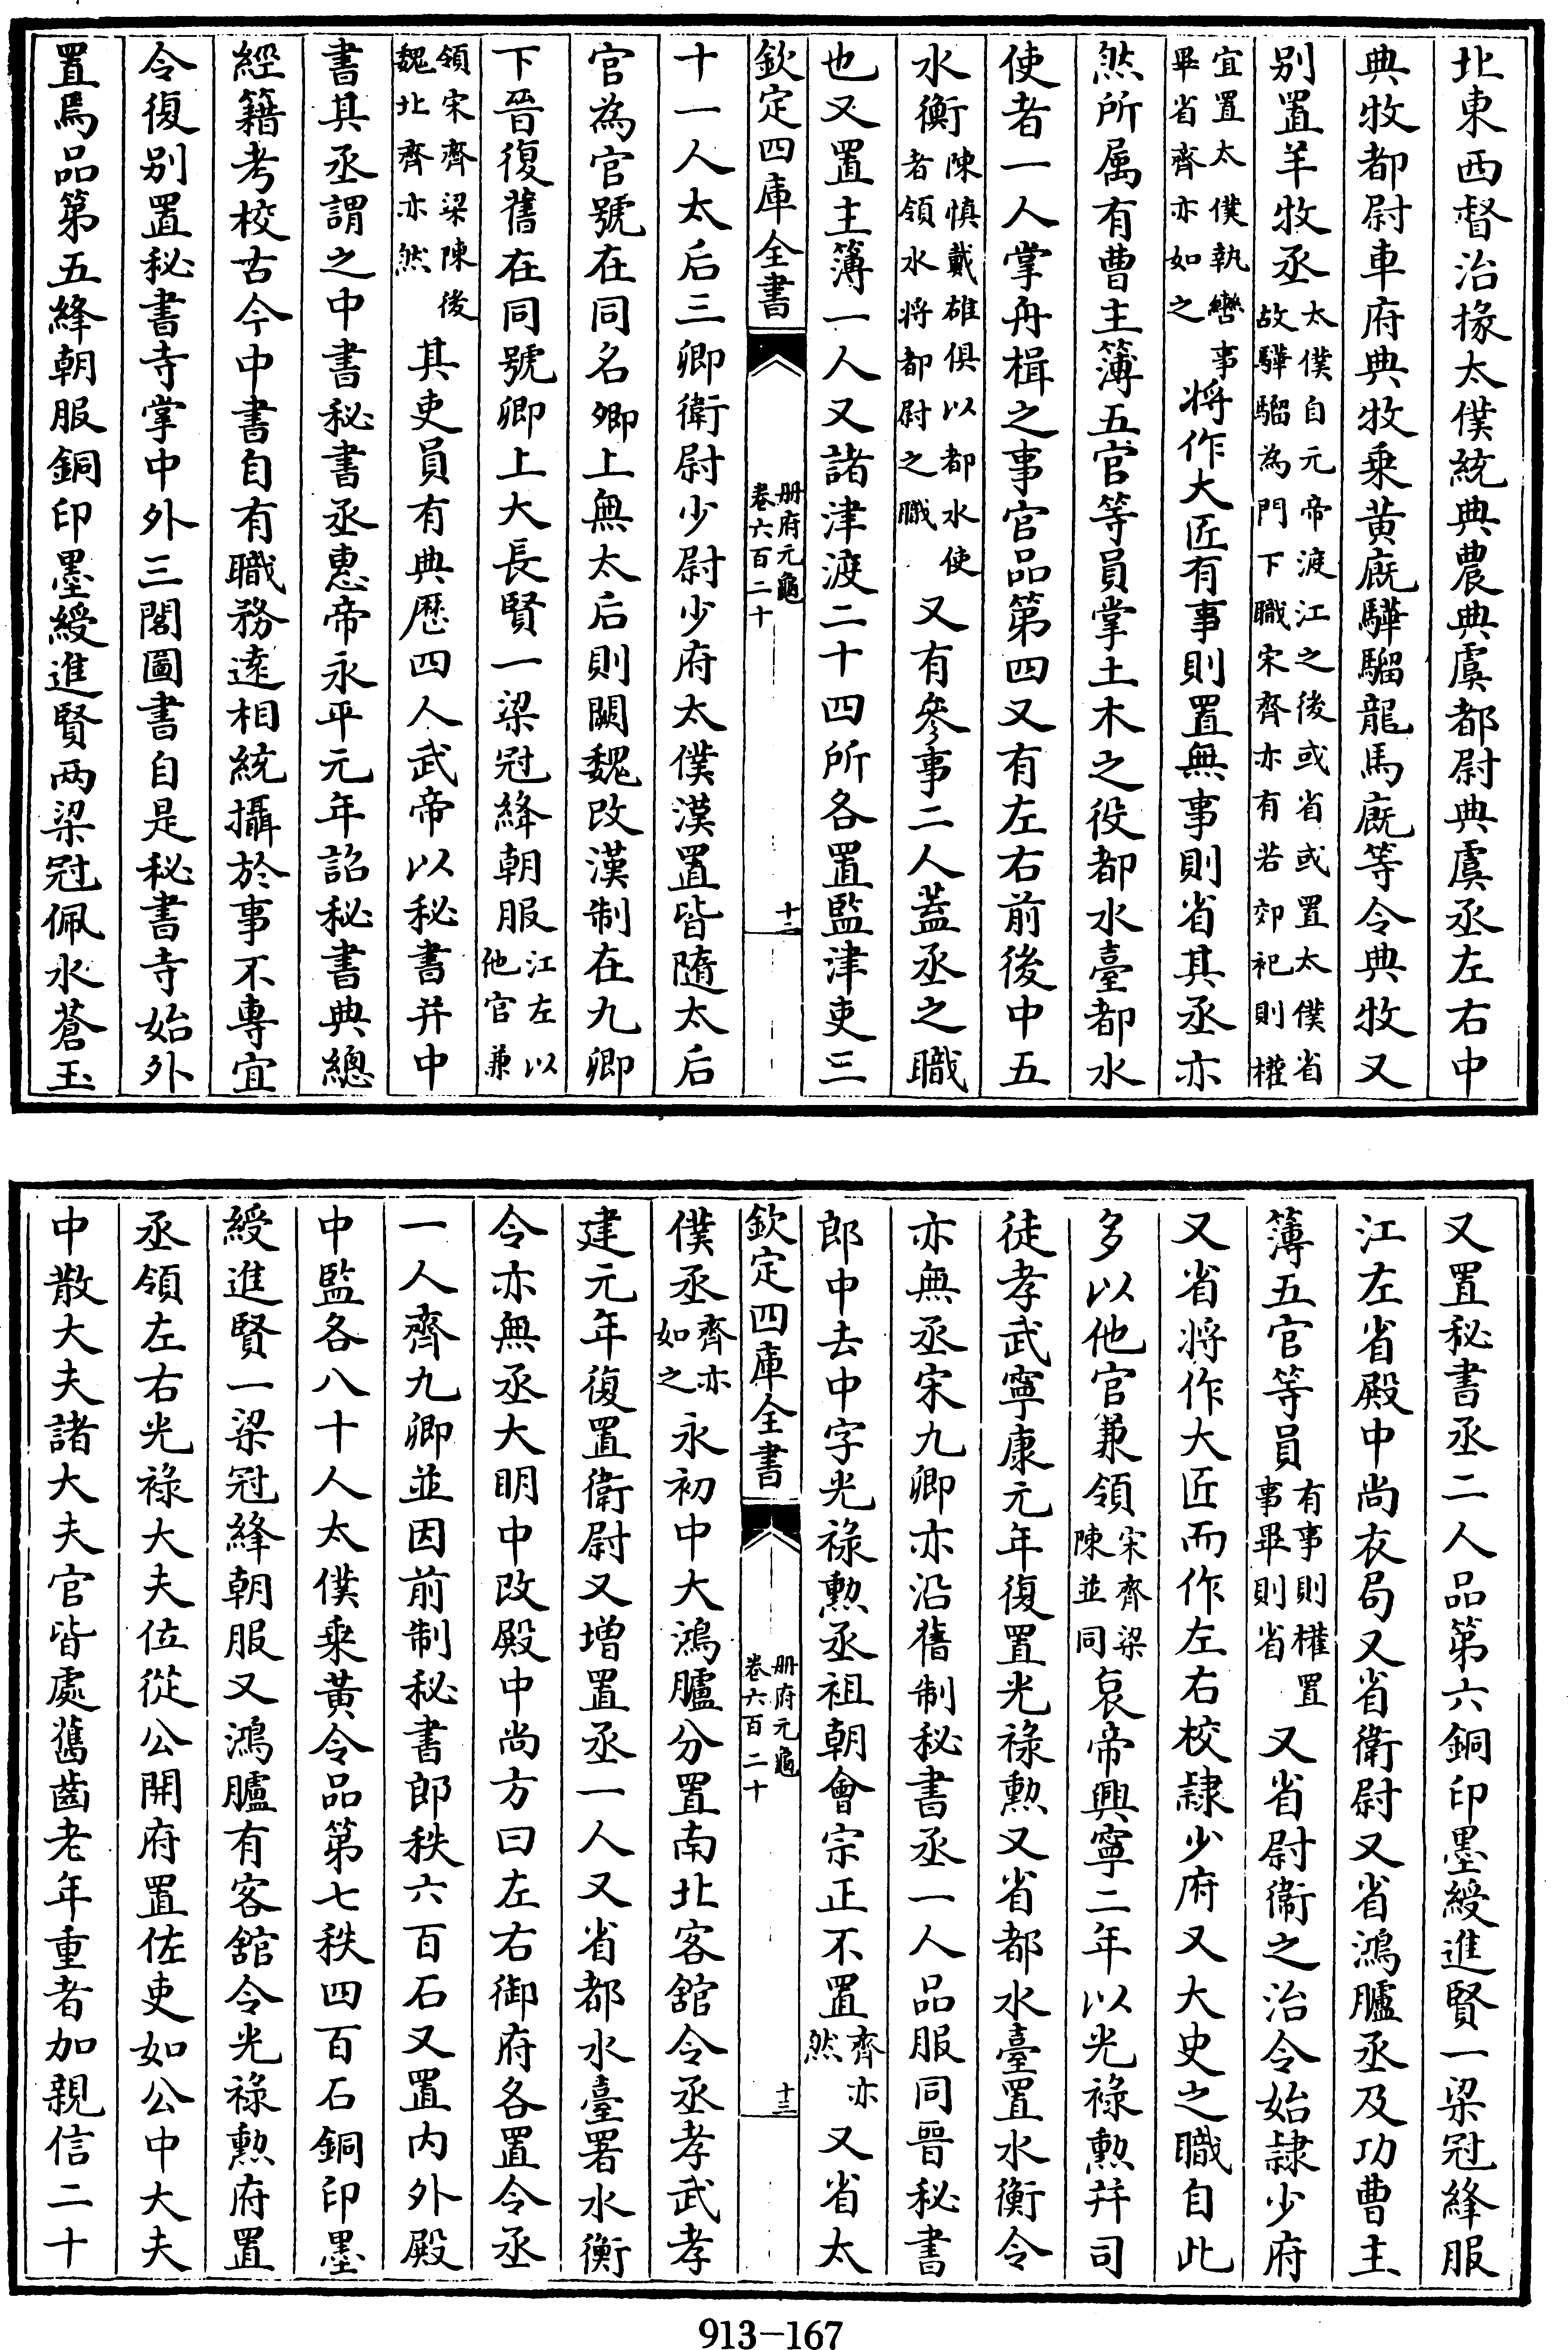 北東西督治掾太僕統典農典虞都尉典虞丞左右中
典牧都尉車府典牧乗黃廐驊騮龍馬廐等令典牧又
别置羊牧丞太僕自元帝渡江之後或省或置太僕省故驊騮為門下職宋齊亦有若郊祀則權
宜置太僕執轡事畢省齊亦如之將作大匠有事則置無事則省其丞亦
然所屬有曹主簿五官等員掌土木之役都水臺都水
使者一人掌舟楫之事官品第四又有左右前後中五
水衡陳慎戴雄俱以都水使者領水將都尉之職又有參事二人蓋丞之職
也又置主簿一人又諸津渡二十四所各置監津吏三
欽定四庫全書
册府元龜
卷六百二十
十二
十一人太后三卿衛尉少尉少府太僕漢置皆隨太后
官為官號在同名卿上無太后則闕魏改漢制在九卿
下晉復舊在同號卿上大長賢一梁冠絳朝服江左以他官兼
領宋齊梁陳後魏北齊亦然其吏員有典厯四人武帝以秘書并中
書其丞謂之中書秘書丞惠帝永平元年詔秘書典總
經籍考校古今中書自有職務遠相統攝於事不專宜
令復别置秘書寺掌中外三閣圖書自是秘書寺始外
置焉品第五絳朝服銅印墨綬進賢兩梁冠佩水蒼玉
又置秘書丞二人品第六銅印墨綬進賢一梁冠絳服
江左省殿中尚衣局又省衛尉又省鴻臚丞及功曹主
簿五官等員有事事則權置事畢則省又省尉衞之治令始隷少府
又省將作大匠而作左右校隷少府又大史之職自此
多以他官兼領宋齊梁陳並同哀帝興寧二年以光祿勲并司
徒孝武寧康元年復置光祿勲又省都水臺置水衡令
亦無丞宋九卿亦沿舊制秘書丞一人品服同晉秘書
郎中去中字光祿勲丞祖朝會宗正不置齊亦然又省太
欽定四庫全書
册府元龜
卷六百二十
十三
僕丞齊亦如之永初中大鴻臚分置南北客舘令丞孝武孝
建元年復置衛尉又增置丞一人又省都水臺署水衡
令亦無丞大明中改殿中尚方曰左右御府各置令丞
一人齊九卿並因前制秘書郎秩六百石又置内外殿
中監各八十人太僕乘黃令品第七秩四百石銅印墨
綬進賢一梁冠絳朝服又鴻臚有客舘令光祿勲府置
丞領左右光祿大夫位從公開府置佐吏如公中大夫
中散大夫諸大夫官皆處舊齒老年重者加親信二十
913-167